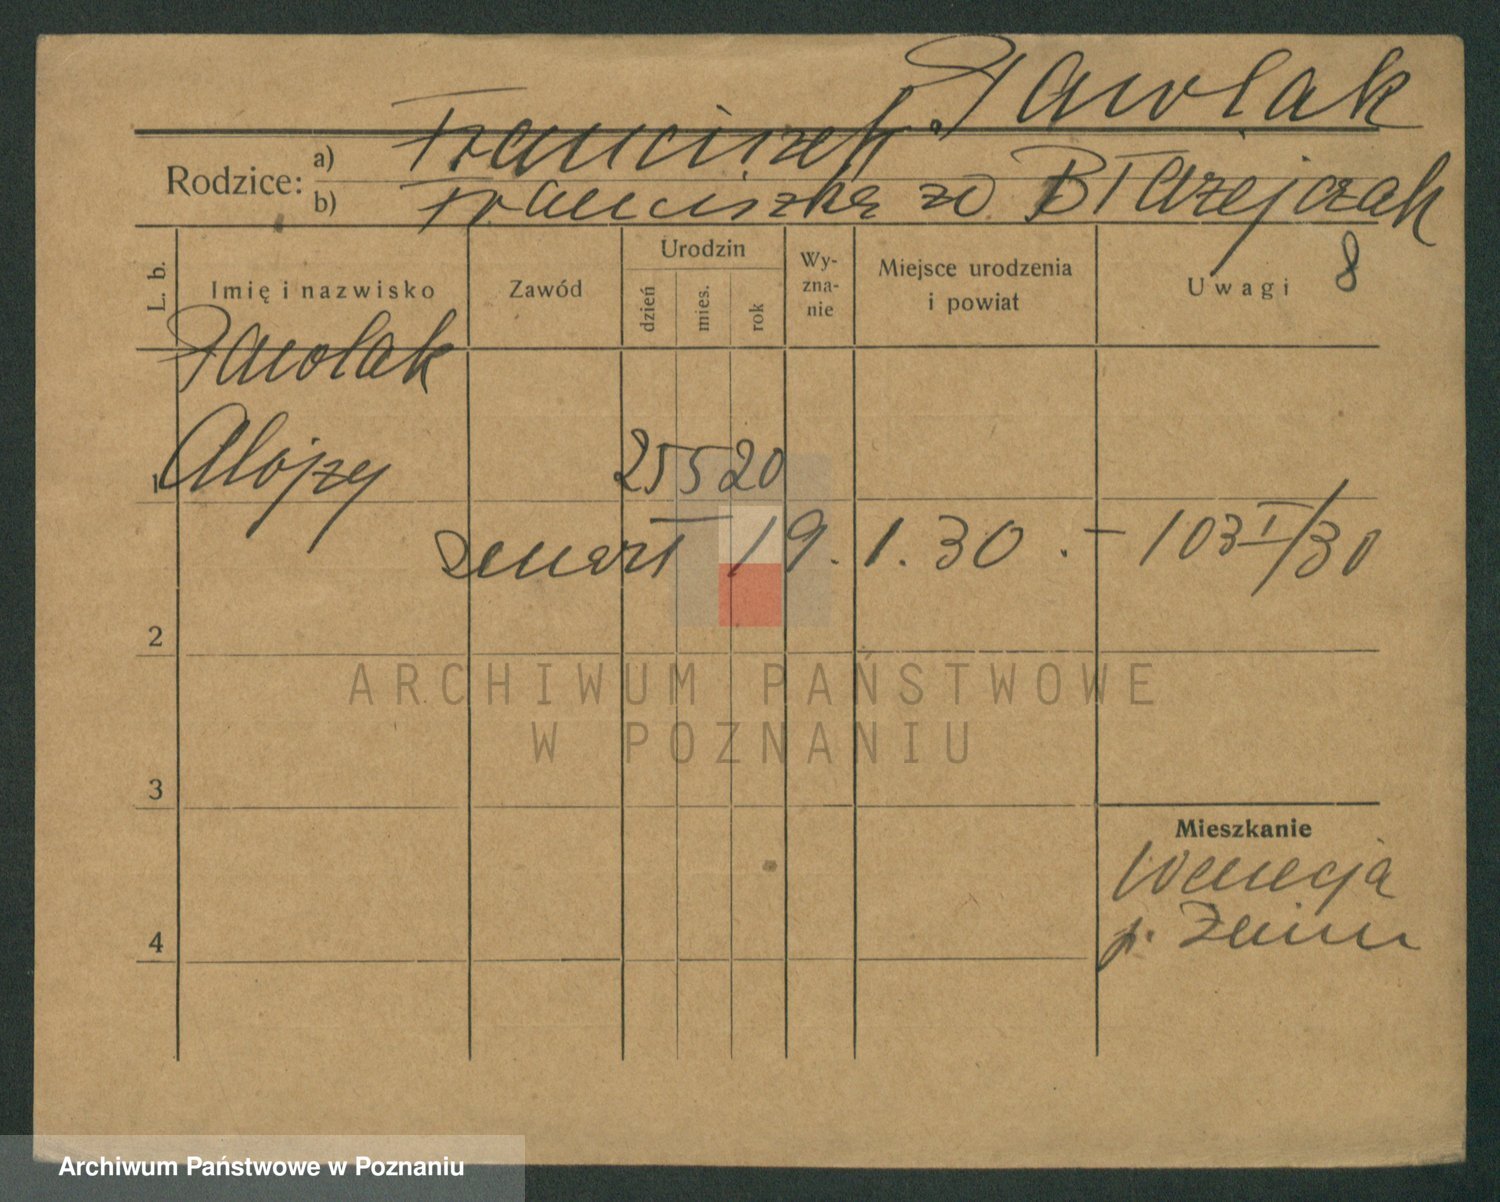 Pawlak
Rodzice:
a) Franciszek
b) Franciszka zd Błażejczak
8
L. b.
Imię i nazwisko
Zawód
Urodzin
dzień
mies.
rok
Wy-
zna-
nie
Miejsce urodzenia
i powiat
Uwagi
Pawolak
1 Alojzy 25 5 20
zmarł 19. 1. 30. – 103 I/30
2
ARCHIWUM PAŃSTWOWE
W POZNANIU
3
Mieszkanie
Wenecja
p. Żnin
4
Archiwum Państwowe w Poznaniu